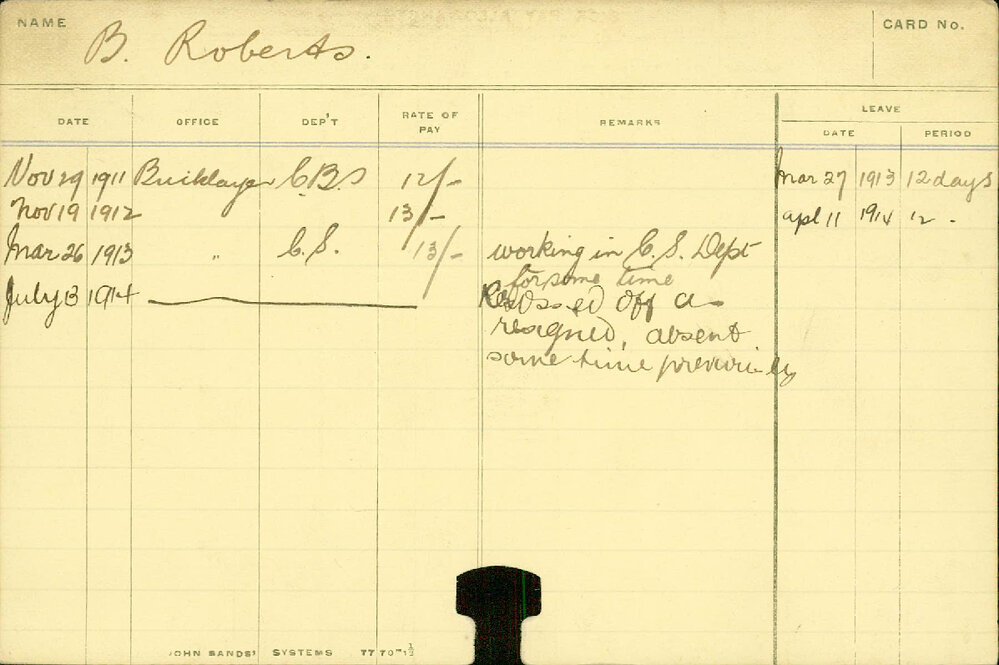 NAME B. Roberts. CARD No.
LEAVE
DATE OFFICE DEP'T RATE OF PAY REMARKS DATE PERIOD
Nov 29 1911 Bricklayer C.B.S 12/- Mar 27 1913 12 days
Nov 19 1912 13/- apl 11 1914 12 -
Mar 26 1913 " C.S. 13/- working in C.S. Dept
for some time
July 3 1914 off as
resigned, absent
some time previously
JOHN SANDS' SYSTEMS 77 70